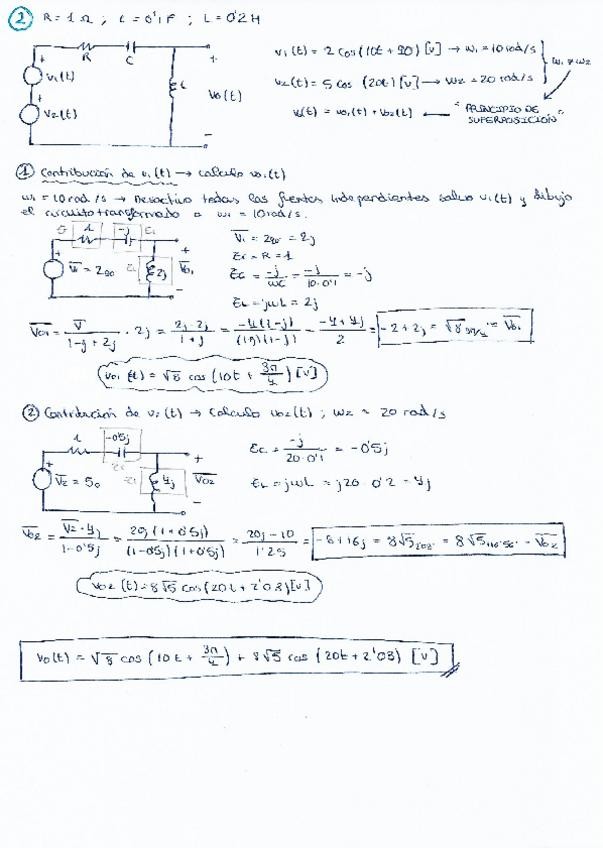 2 R = 1 Ω ; C = 0'1 F ; L = 0'2 H
v₁(t) = 2 cos(10t + 90) [v] → w₁ = 10 rad/s
v₂(t) = 5 cos (20t) [v] → w₂ = 20 rad/s
w₁ ≠ w₂
v₀(t) = v₀₁(t) + v₀₂(t) ← "PRINCIPIO DE SUPERPOSICIÓN"
+ v₁(t) + v₂(t) R C L + v₀(t) -
① Contribución de v₁(t) → calculo v₀₁(t)
w₁ = 10 rad/s → Desactivo todas las fuentes independientes salvo v₁(t) y dibujo
el circuito transformado a w₁ = 10 rad/s.
1 -j 2j + V₁ = 2₉₀ + V₀₁ -
V₁ = 2₉₀ = 2j
Z_R = R = 1
Z_C = -j/wC = -j/10·0'1 = -j
Z_L = jwL = 2j
V₀₁ = V/(1-j+2j) · 2j = 2j·2j/(1+j) = -4(1-j)/(1+j)(1-j) = (-4+4j)/2 = -2+2j = √8 3π/4 = V₀₁
v₀₁(t) = √8 cos(10t + 3π/4) [v]
② Contribución de v₂(t) → Calculo v₀₂(t) ; w₂ = 20 rad/s
1 -0'5j 4j + V₂ = 5₀ + V₀₂ -
Z_C = -j/20·0'1 = -0'5j
Z_L = jwL = j20·0'2 = 4j
V₀₂ = V₂·4j/(1-0'5j) = 20j(1+0'5j)/(1-0'5j)(1+0'5j) = (20j-10)/1'25 = -8+16j = 8√5 ₂'₀₃ = 8√5 ₁₁₆'₅₆° = V₀₂
v₀₂(t) = 8√5 cos(20t + 2'03) [v]
v₀(t) = √8 cos (10t + 3π/4) + 8√5 cos (20t + 2'03) [v]